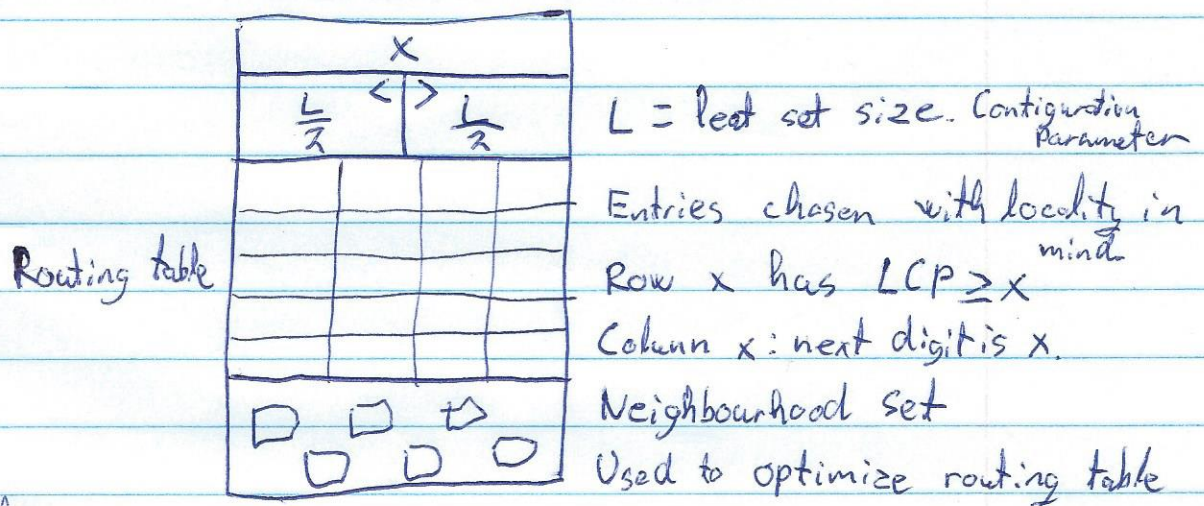 x
L/2 < > L/2 L = leaf set size. Configuration Parameter
Entries chosen with locality in mind.
Routing table
Row x has LCP ≥ x
Column x: next digit is x.
Neighbourhood set
Used to optimize routing table